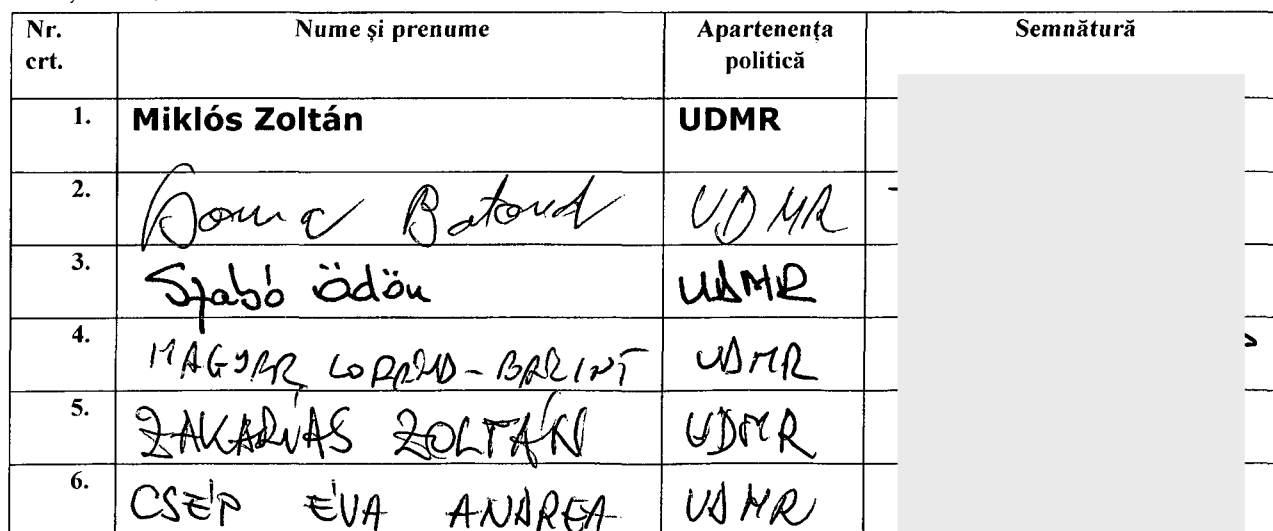 Nr. crt. Nume și prenume Apartenența politică Semnătură
1. Miklós Zoltán UDMR
2. UDMR
3. Szabó Ödön UDMR
4. MAGYAR LORÁND-BÁLINT UDMR
5. ZAKARIÁS ZOLTÁN UDMR
6. CSÉP ÉVA ANDREA UDMR